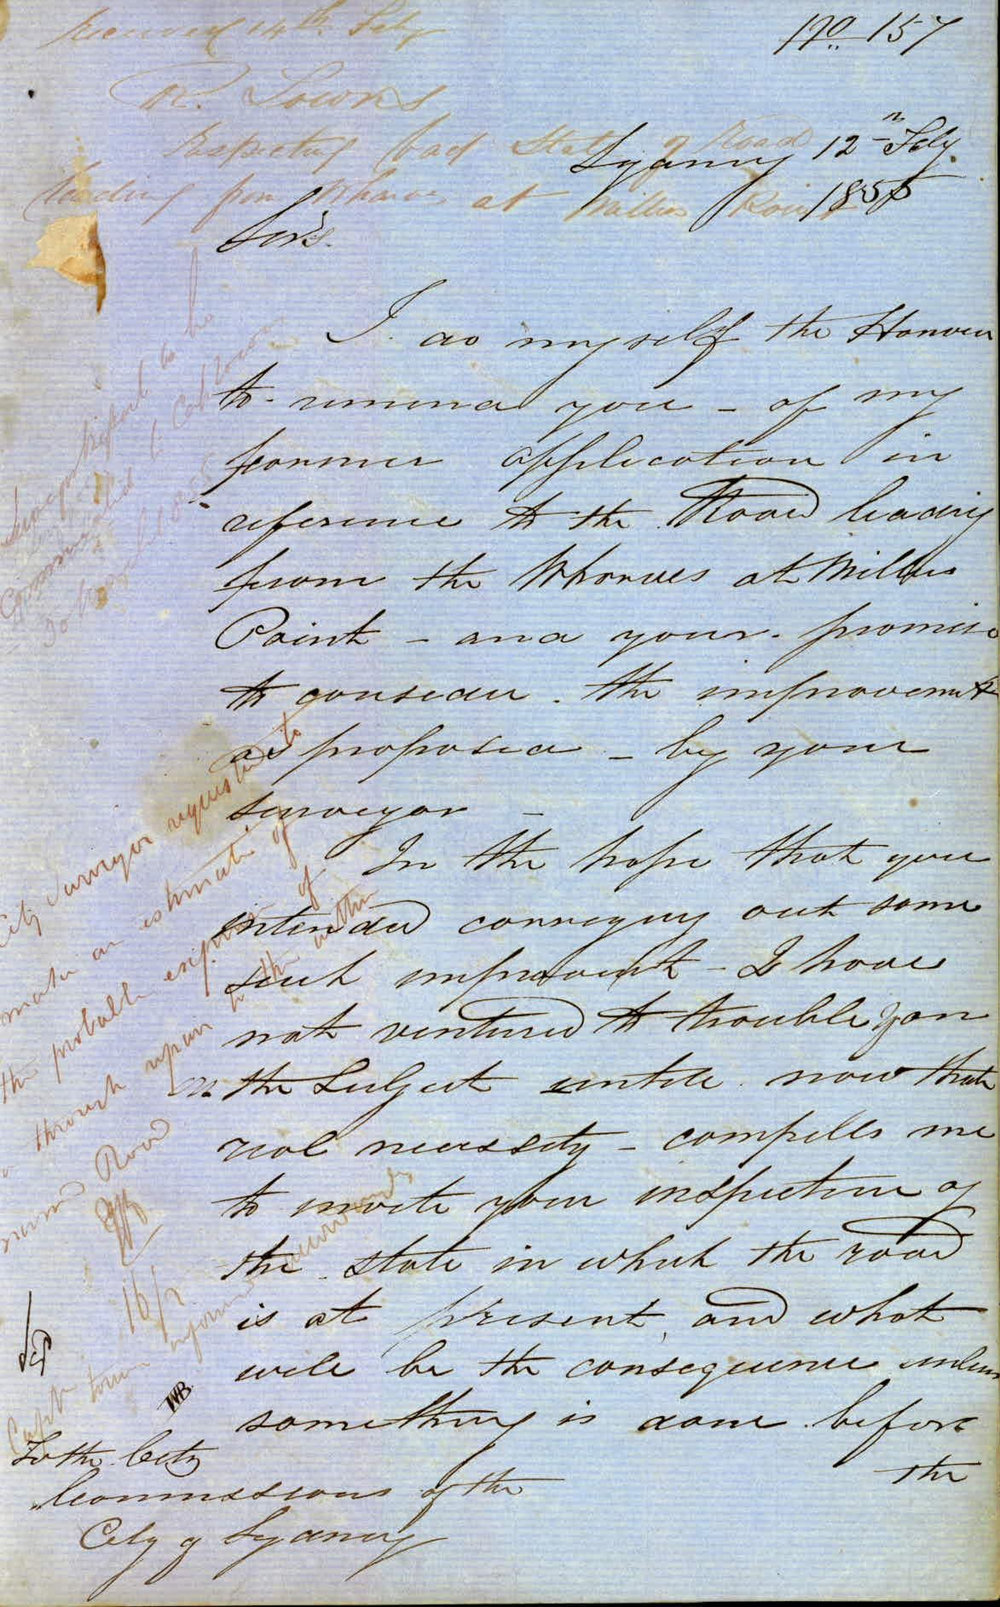 No 157
Received 14th Feby
R. Towns
Respecting bad State of Road
leading from Wharves at Millers Point
Sydney 12th Feby
1855
Sirs.
I do myself the Honour
to remind you - of my
former application in
reference to the Road leading
from the Wharves at Millers
Point - and your promise
to consider the improvements
as proposed - by your
surveyor -
In the hope that you
intended carrying out some
such improvement - I have
not ventured to trouble you
on the Subject untill now that
real necessity - compells me
to invite your inspection of
the state in which the road
is at present, and what
will be the consequence unless
something is done before
the
To the City
Commissioners of the
City of Sydney
City Surveyor requested to
make an estimate of
the probable expense of
a thorough repair to the within
named Road
16/2
Capt Towns informed